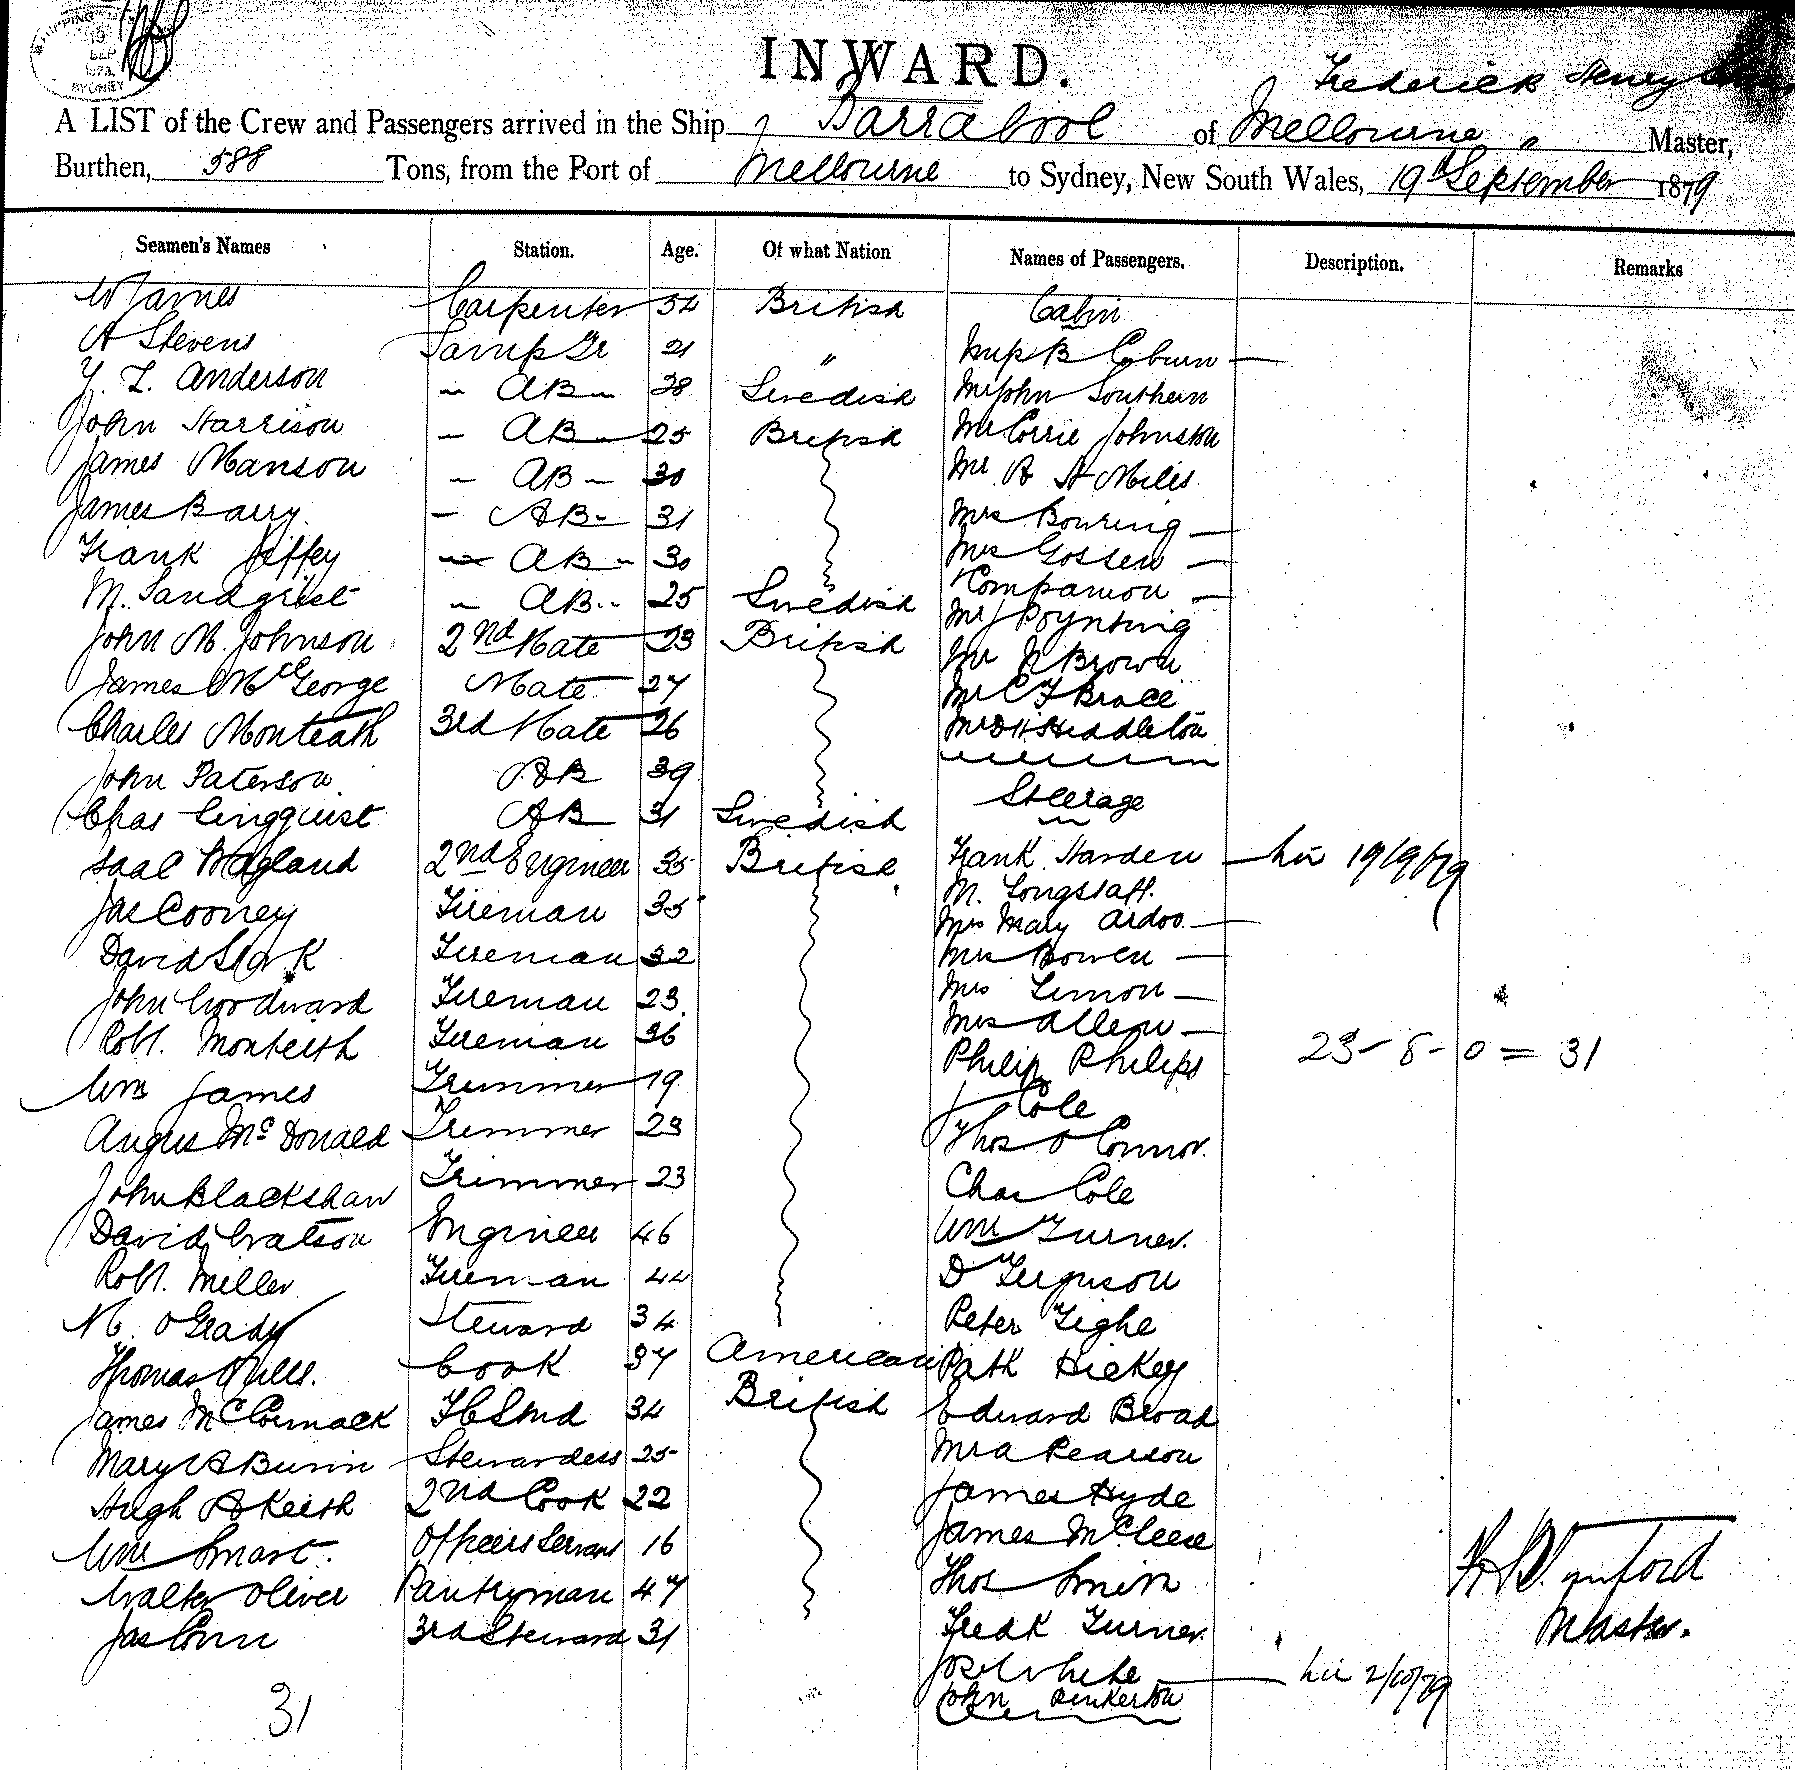 SEP
SYDNEY
INWARD.
Frederick Henry
A LIST of the Crew and Passengers arrived in the Ship Barrabool of Melbourne Master,
Burthen, 588 Tons, from the Port of Melbourne to Sydney, New South Wales, 19th September 1879
Seamen's Names Station. Age. Of what Nation Names of Passengers. Description. Remarks
W James Carpenter 54 British Cabin
A Stevens Lamp Tr 21 " B Coburn
Anderson AB 28 Swedish Mr John Southern
John Harrison AB 25 British Mr Corrie Johnston
James Manson AB 30 Mr A Miles
James Barry AB 31 Mrs Bowring
Frank Jeffey AB 30 Mrs Gossen
M. Sandqvist AB 25 Swedish Companion
John M. Johnson 2nd Mate 23 British Mr J Poynting
James McGeorge Mate 27 Mr Brown
Charles Monteath 3rd Mate 26 Mr C F Brace
John Paterson AB 39 Middleton
Chas Lingquist AB 31 Swedish Steerage
Wagland 2nd Engineer 35 British Frank Harden 19/9/79
Jas Cooney Fireman 35 M. Longstaff.
David Fireman 32 Mrs Mary Ardoo
John Woodward Fireman 23 Mrs Bowen
Robt. Monteith Fireman 36 Mrs Limon
Wm James Trimmer 19 Mrs Allen
Angus McDonald Trimmer 23 Philip Philips 23 - 8 - 0 = 31
John Blackshaw Trimmer 23 J Cole
David Watson Engineer 46 Thos O Connor.
Robt. Miller Fireman 44 Chas Cole
M. OGrady Steward 34 Wm Turner.
Thomas Cook 37 American D Ferguson
James McCormack 34 British Peter Tighe
Mary A Burin Stewardess 25 Patk Hickey
Hugh A Keith 2nd Cook 22 Edward Broad
Wm Smart. Officers Servant 16 Mr A Pearson
Walter Oliver Pantryman 47 James Hyde
Jas Conn 3rd Steward 31 James McCleese
Thos Smith
Fredk Turner.
Jos White 2/10/79
John Pinkerton
31
Master.